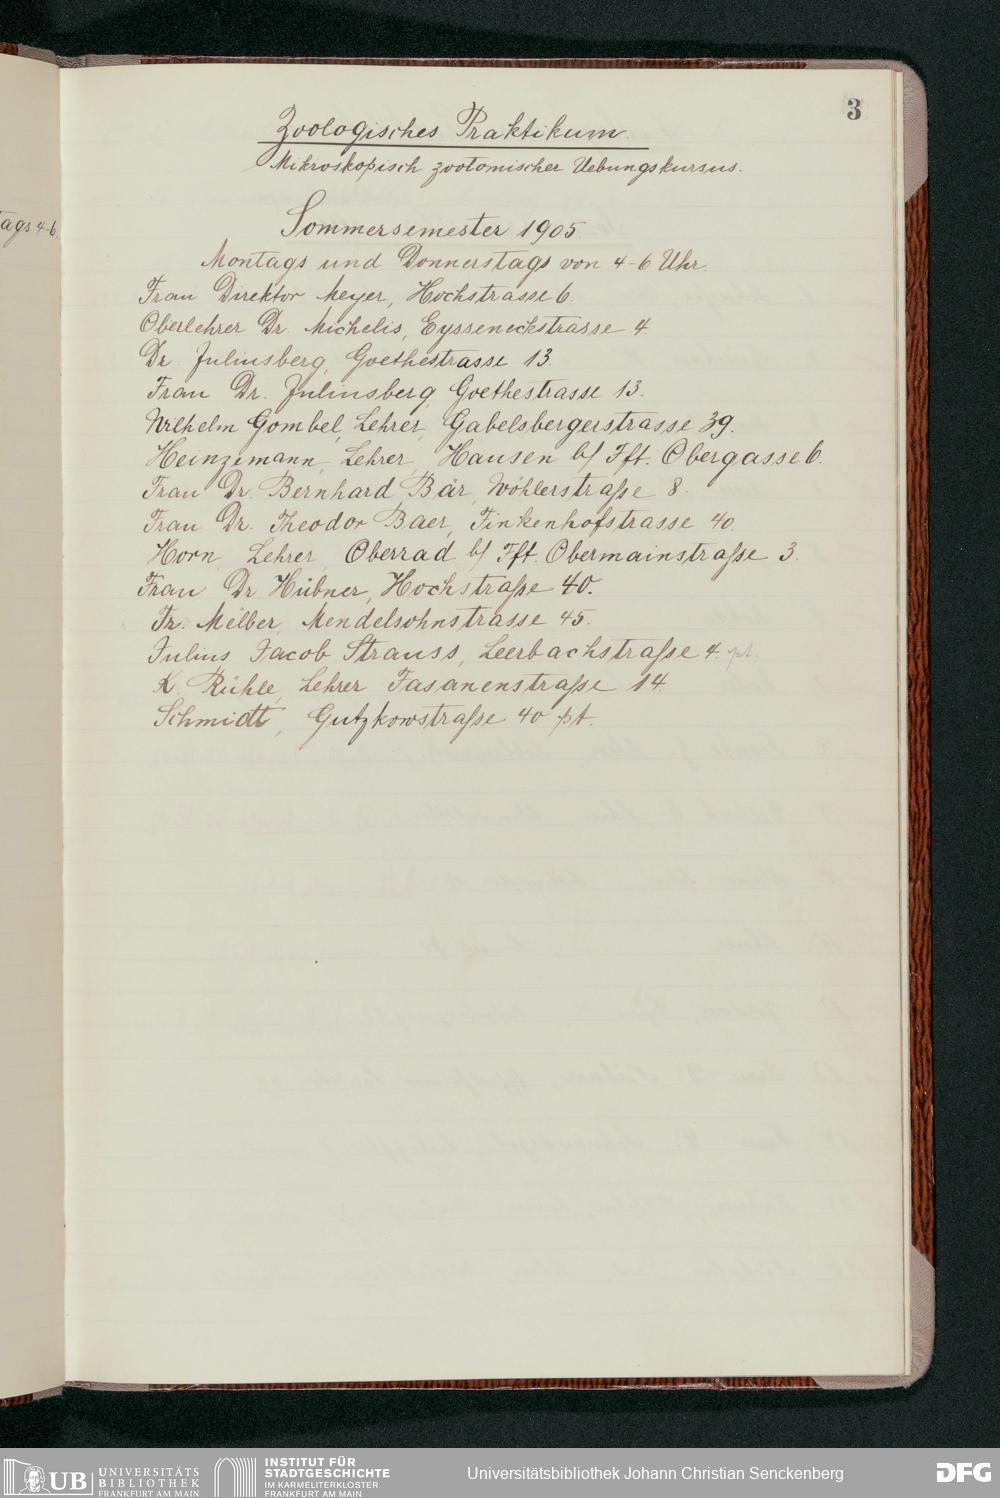 3
Zoologisches Praktikum.
Mikroskopisch zootomischer Uebungskursus.
tags 4-6.
Sommersemester 1905.
Montags und Donnerstags von 4-6 Uhr.
Frau Direktor Meyer, Hochstrasse 6.
Oberlehrer Dr. Michelis, Eysseneckstrasse 4.
Dr. Juliusberg, Goethestrasse 13.
Frau Dr. Juliusberg, Goethestrasse 13.
Wilhelm Gombel, Lehrer, Gabelsbergerstrasse 39.
Heinzemann, Lehrer, Hausen b/ Fft. Obergasse 6.
Frau Dr. Bernhard Bär, Wöhlerstraße 8.
Frau Dr. Theodor Baer, Finkenhofstrasse 40.
Horn, Lehrer, Oberrad b/ Fft. Obermainstraße 3.
Frau Dr. Hübner, Hochstraße 40.
Fr. Melber, Mendelsohnstrasse 45.
Julius Jacob Strauss, Leerbachstraße 4. pt.
K. Rühle, Lehrer Fasanenstraße 14.
Schmidt, Gutzkowstraße 40 pt.
UB UNIVERSITÄTS BIBLIOTHEK FRANKFURT AM MAIN
INSTITUT FÜR STADTGESCHICHTE IM KARMELITERKLOSTER FRANKFURT AM MAIN
Universitätsbibliothek Johann Christian Senckenberg
DFG